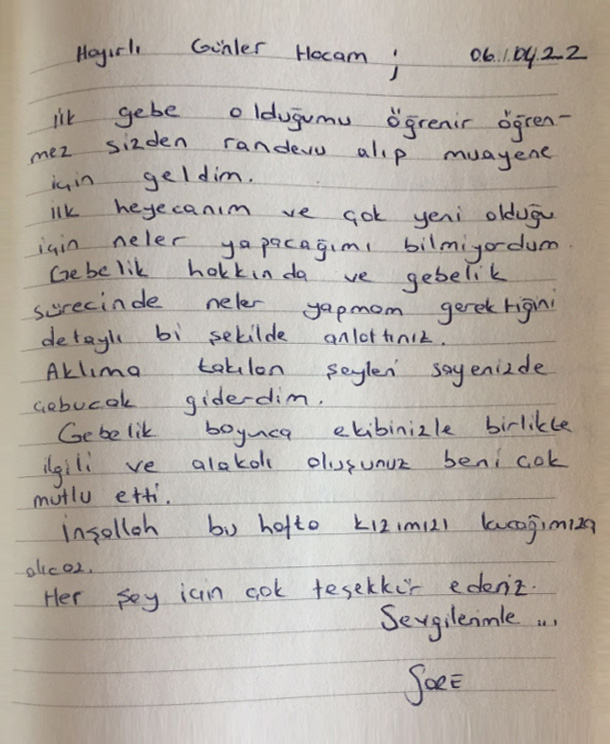 Hayırlı Günler Hocam ; 06.04.22
ilk gebe olduğumu öğrenir öğren-
mez sizden randevu alıp muayene
için geldim.
ilk heyecanım ve çok yeni olduğu
için neler yapacağımı bilmiyordum.
Gebelik hakkında ve gebelik
sürecinde neler yapmam gerektiğini
detaylı bi şekilde anlattınız.
Aklıma takılan şeyleri sayenizde
çabucak giderdim.
Gebelik boyunca ekibinizle birlikte
ilgili ve alakalı oluşunuz beni çok
mutlu etti.
inşallah bu hafta kızımızı kucağımıza
alıcaz.
Her şey için çok teşekkür ederiz.
Sevgilerimle ...